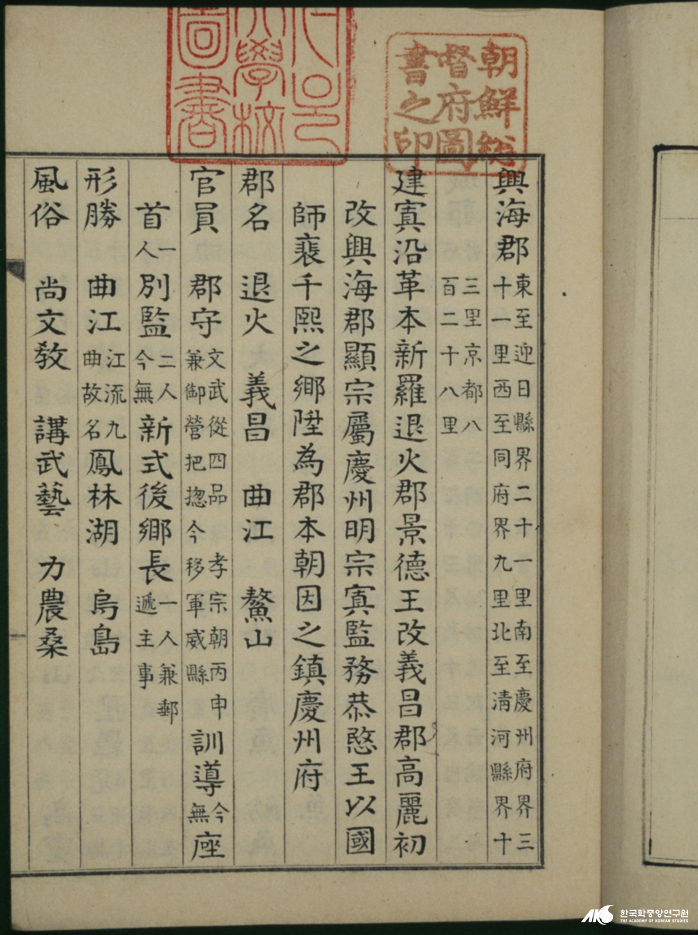 朝鮮総
督府圖
書之印
大學校
圖書
興海郡 東至迎日縣界二十一里南至慶州府界三十一里西至同府界九里北至清河縣界十
三里京都八百二十八里
建寘沿革本新羅退火郡景德王改義昌郡高麗初
改興海郡顯宗屬慶州明宗寘監務恭愍王以國
師裵千熙之鄉陞為郡本朝因之鎮慶州府
郡名 退火 義昌 曲江 鰲山
官員 郡守 文武從四品 孝宗朝丙申兼御營把揔今移軍威縣 訓導 今無 座
首 一人 別監 二人今無 新式後鄉長 一人兼郵遞主事
形勝 曲江 江流九曲故名 鳳林湖 烏島
風俗 尚文敎 講武藝 力農桑
한국학중앙연구원
THE ACADEMY OF KOREAN STUDIES